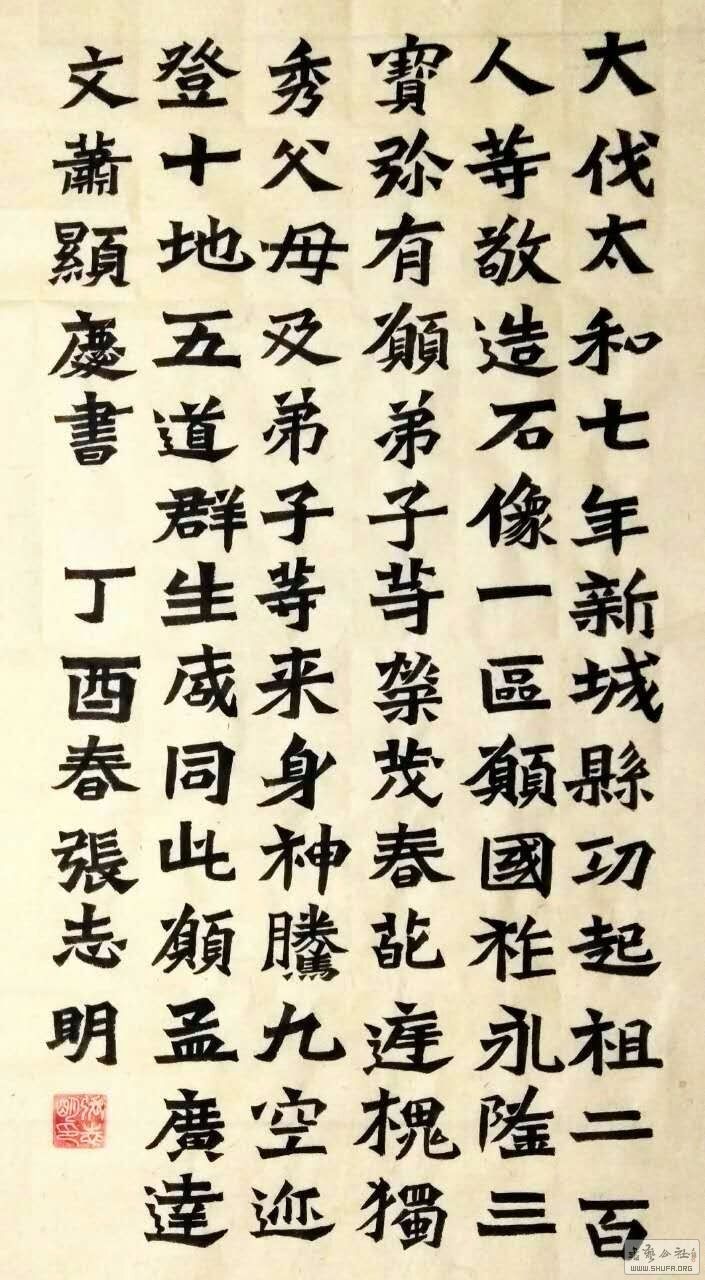 大伐太和七年新城縣功起祖二百
人等敬造石像一區願國祚永隆三
寶弥有願弟子等榮茂春葩庭槐獨
秀父母及弟子等来身神騰九空迩
登十地五道群生咸同此願孟廣達
文蕭顯慶書 丁酉春張志明
WWW.SHUFA.ORG